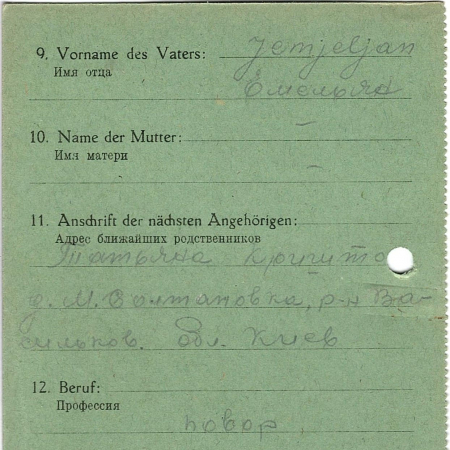 9. Vorname des Vaters: Jemjeljan
Имя отца
Емельян
10. Name der Mutter: —
Имя матери
—
11. Anschrift der nächsten Angehörigen:
Адрес ближайших родственников
Татьяна
д. М. Солтановка, р-н Ва-
сильков. обл. Киев
12. Beruf:
Профессия
повор